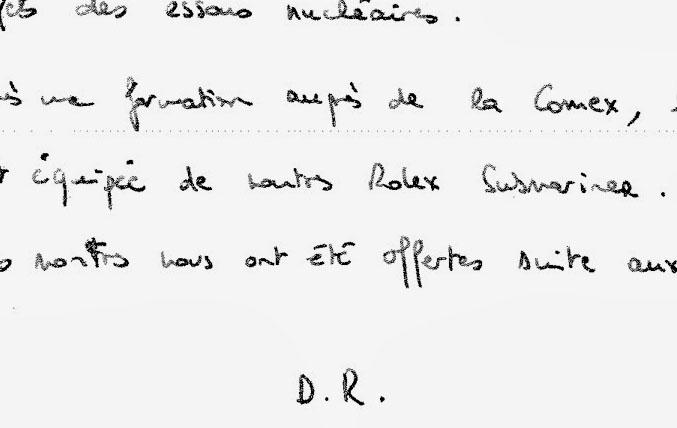 des essais nucléaires.
une formation auprès de la Comex,
équipée de montres Rolex Submariner.
montres nous ont été offertes suite aux
D.R.